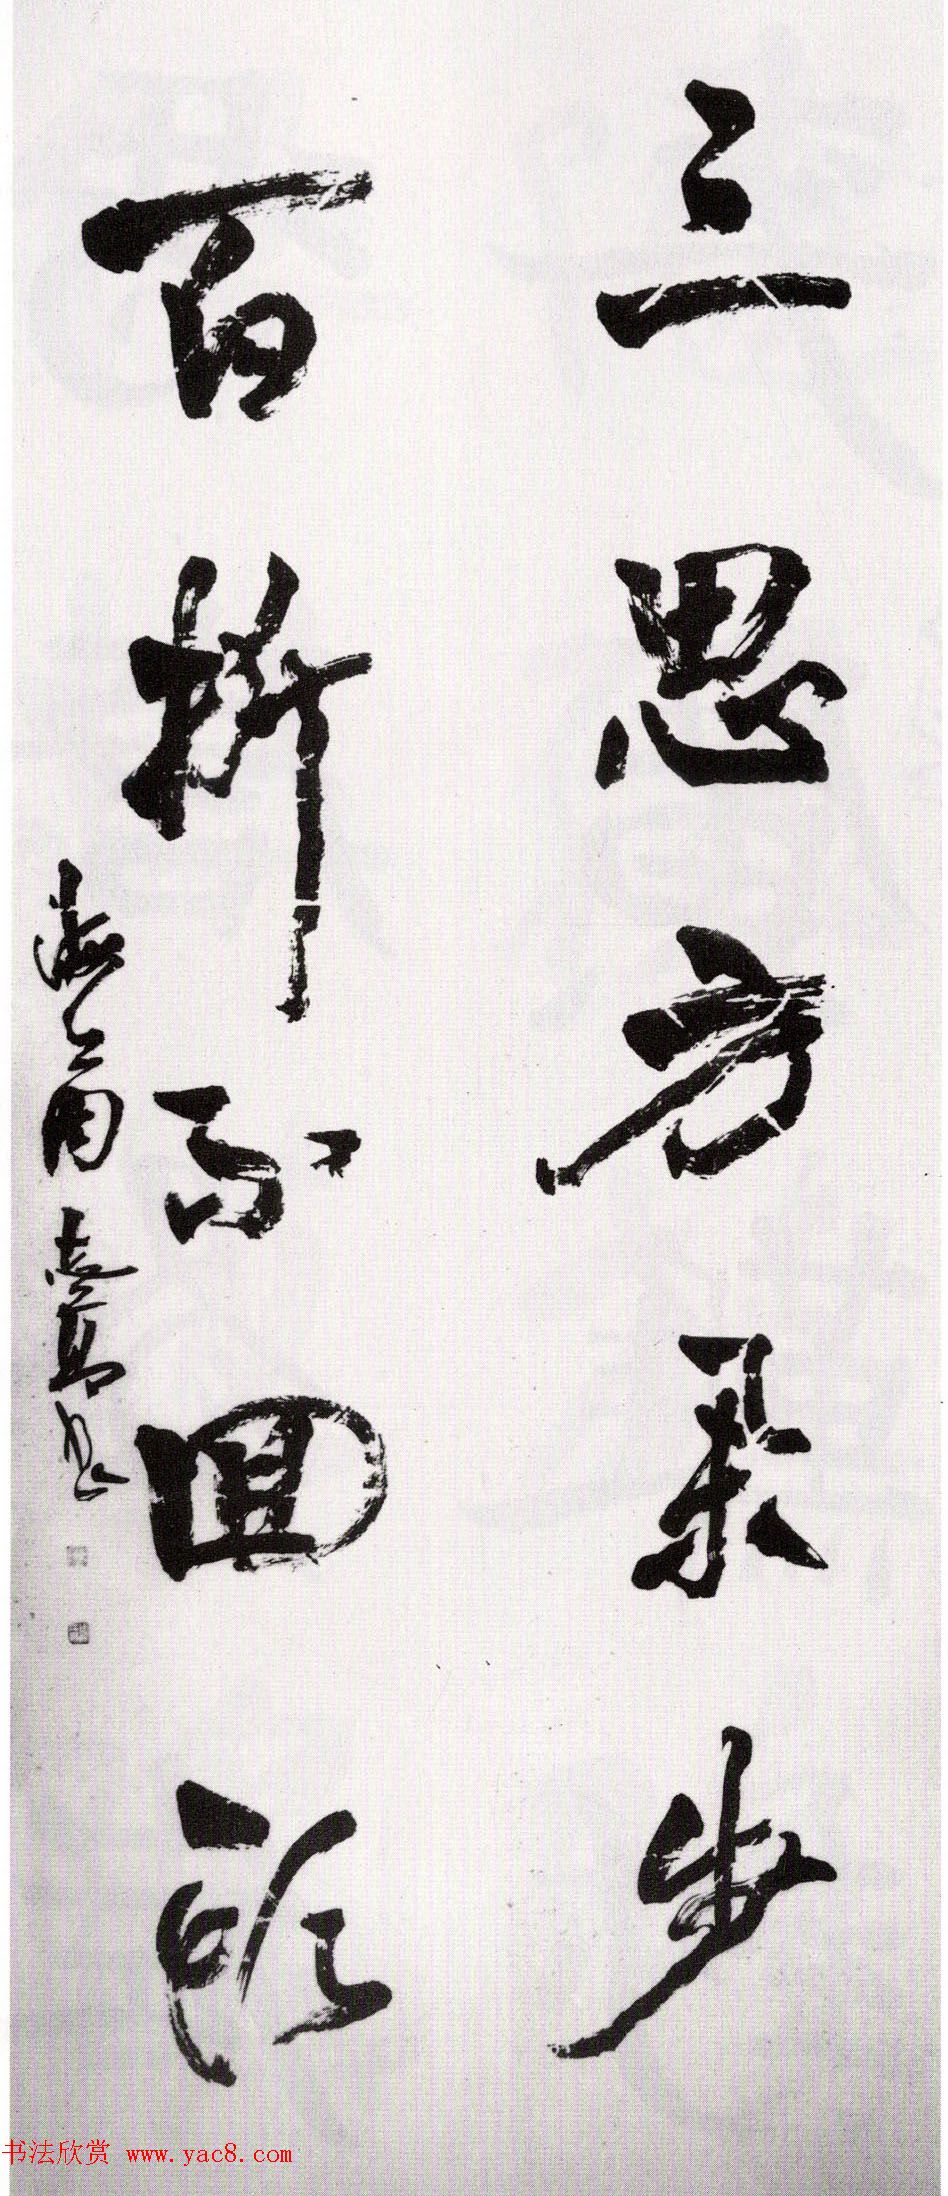 三思方举步
百折不回头
书法欣赏 www.yac8.com